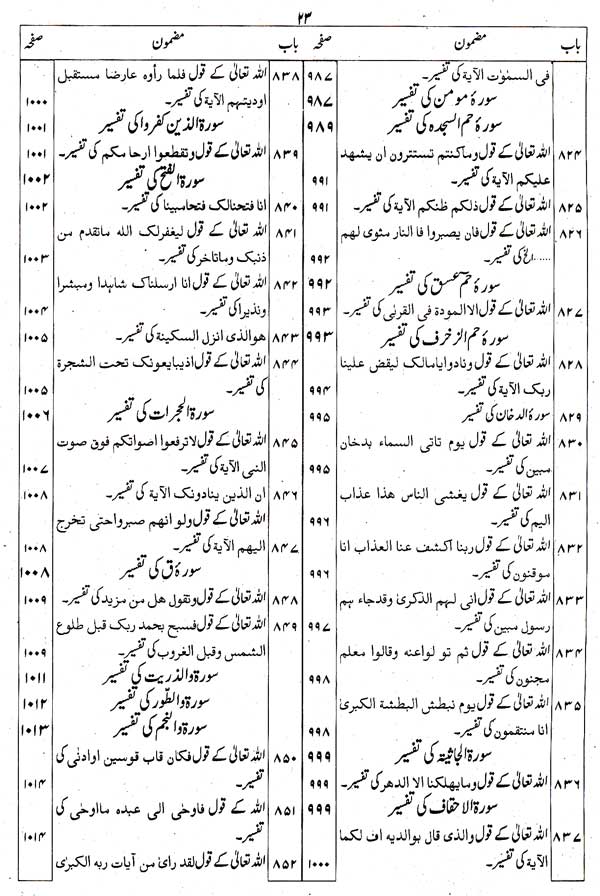 ۲۳
باب مضمون صفحہ
فی السمٰوٰت الآیة کی تفسیر۔ ۹۸۷
سورۂ مومن کی تفسیر ۹۸۷
سورۂ حم السجدہ کی تفسیر ۹۸۹
۸۲۴ اللہ تعالیٰ کے قول وماکنتم تستترون ان یشهد
علیکم الآیة کی تفسیر۔ ۹۹۱
۸۲۵ اللہ تعالیٰ کے قول ذلکم ظنکم الآیة کی تفسیر۔ ۹۹۱
۸۲۶ اللہ تعالیٰ کے قول فان یصبروا فا النار مثوی لهم
..... الخ کی تفسیر۔ ۹۹۲
سورۂ حم عسق کی تفسیر ۹۹۲
۸۲۷ اللہ تعالیٰ کے قول الا المودة فی القربٰی کی تفسیر۔ ۹۹۳
سورۂ حم الزخرف کی تفسیر ۹۹۳
۸۲۸ اللہ تعالیٰ کے قول ونادوایامالک لیقض علینا
ربک الآیة کی تفسیر۔ ۹۹۴
۸۲۹ سورۃ الدخان کی تفسیر ۹۹۵
۸۳۰ اللہ تعالیٰ کے قول یوم تاتی السماء بدخان
مبین کی تفسیر۔ ۹۹۵
۸۳۱ اللہ تعالیٰ کے قول یغشی الناس هذا عذاب
الیم کی تفسیر۔ ۹۹۶
۸۳۲ اللہ تعالیٰ کے قول ربنا اکشف عنا العذاب انا
موقنون کی تفسیر۔ ۹۹۶
۸۳۳ اللہ تعالیٰ کے قول انی لهم الذکریٰ وقدجاء هم
رسول مبین کی تفسیر۔ ۹۹۷
۸۳۴ اللہ تعالیٰ کے قول ثم تو لواعنه وقالوا معلم
مجنون کی تفسیر۔ ۹۹۸
۸۳۵ اللہ تعالیٰ کے قول یوم نبطش البطشة الکبریٰ
انا منتقمون کی تفسیر۔ ۹۹۸
سورۃ الجاثیتہ کی تفسیر ۹۹۹
۸۳۶ اللہ تعالیٰ کے قول ومایهلکنا الا الدهر کی تفسیر۔ ۹۹۹
سورۃ الاحقاف کی تفسیر ۹۹۹
۸۳۷ اللہ تعالیٰ کے قول والذی قال بوالدیه اف لکما
الآیة کی تفسیر۔ ۱۰۰۰
باب مضمون صفحہ
۸۳۸ اللہ تعالیٰ کے قول فلما رأوه عارضا مستقبل
اودیتهم الآیة کی تفسیر۔ ۱۰۰۰
سورۃ الذین کفروا کی تفسیر ۱۰۰۱
۸۳۹ اللہ تعالیٰ کے قول وتقطعوا ارحا مکم کی تفسیر۔ ۱۰۰۱
سورۃ الفتح کی تفسیر ۱۰۰۲
۸۴۰ انا فتحنالک فتحامبینا کی تفسیر۔ ۱۰۰۲
۸۴۱ اللہ تعالیٰ کے قول لیغفرلک الله ماتقدم من
ذنبک وماتاخر کی تفسیر۔ ۱۰۰۳
۸۴۲ اللہ تعالیٰ کے قول انا ارسلناک شاهدا ومبشرا
ونذیرا کی تفسیر۔ ۱۰۰۴
۸۴۳ هوالذی انزل السکینة کی تفسیر۔ ۱۰۰۵
۸۴۴ اللہ تعالیٰ کے قول اذیبایعونک تحت الشجرة
کی تفسیر۔ ۱۰۰۵
سورۃ الحجرات کی تفسیر ۱۰۰۶
۸۴۵ اللہ تعالیٰ کے قول لاترفعوا اصواتکم فوق صوت
النبی الآیة کی تفسیر۔ ۱۰۰۷
۸۴۶ ان الذین ینادونک الآیة کی تفسیر۔ ۱۰۰۸
اللہ تعالیٰ کے قول ولو انهم صبرواحتی تخرج
۸۴۷ الیهم الآیة کی تفسیر۔ ۱۰۰۸
سورۂ ق کی تفسیر ۱۰۰۸
۸۴۸ اللہ تعالیٰ کے قول وتقول هل من مزید کی تفسیر۔ ۱۰۰۹
۸۴۹ اللہ تعالیٰ کے قول فسبح بحمد ربک قبل طلوع
الشمس وقبل الغروب کی تفسیر۔ ۱۰۰۹
سورۃ والذریت کی تفسیر ۱۰۱۱
سورۃ والطور کی تفسیر ۱۰۱۲
سورۃ والنجم کی تفسیر ۱۰۱۳
۸۵۰ اللہ تعالیٰ کے قول فکان قاب قوسین اوادنٰی کی
تفسیر۔ ۱۰۱۴
۸۵۱ اللہ کے قول فاوحٰی الی عبده مااوحٰی کی
تفسیر۔ ۱۰۱۴
۸۵۲ اللہ تعالیٰ کے قول لقد رایٰ من آیات ربه الکبریٰ